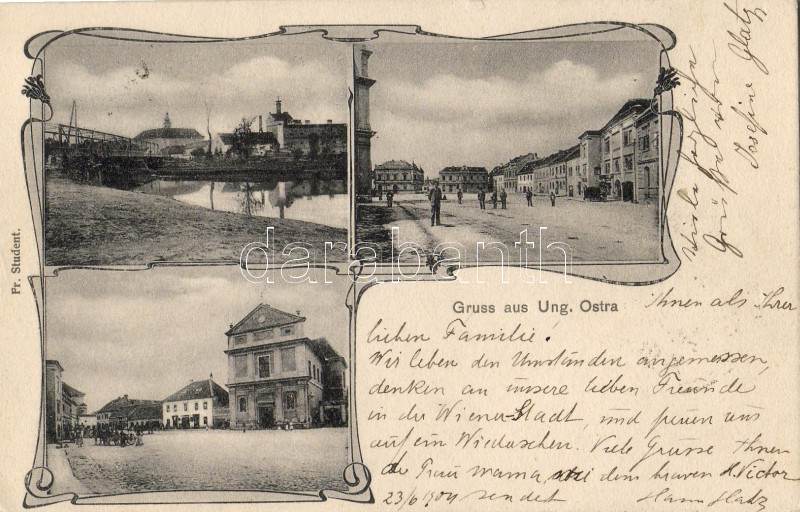 Fr. Student.
Gruss aus Ung. Ostra
darabanth
Viele herzliche
Grüße von
Josefine Glatz
Ihnen als Ihrer
lieben Familie!
Wir leben den Umständen angemessen,
denken an unsere lieben Freunde
in der Wiener-Stadt, und freuen uns
auf ein Wiedersehen. Viele Grüsse Ihnen
der Frau Mama, dem braven H. Victor
23/6 1904 sendet Hans Glatz